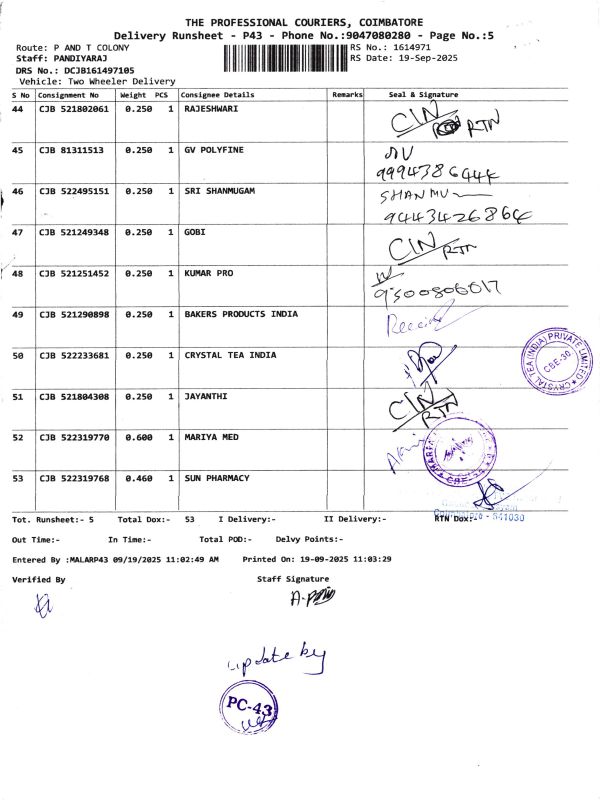 THE PROFESSIONAL COURIERS, COIMBATORE
Delivery Runsheet - P43 - Phone No.:9047080280 - Page No.:5
Route: P AND T COLONY RS No.: 1614971
Staff: PANDIYARAJ RS Date: 19-Sep-2025
DRS No.: DCJB161497105
Vehicle: Two Wheeler Delivery
S No Consignment No Weight PCS Consignee Details Remarks Seal & Signature
44 CJB 521802061 0.250 1 RAJESHWARI CIN RTN
45 CJB 81311513 0.250 1 GV POLYFINE
9994386444
46 CJB 522495151 0.250 1 SRI SHANMUGAM SHANMU
9443426864
47 CJB 521249348 0.250 1 GOBI CIN RTN
48 CJB 521251452 0.250 1 KUMAR PRO
9500806017
49 CJB 521290898 0.250 1 BAKERS PRODUCTS INDIA
50 CJB 522233681 0.250 1 CRYSTAL TEA INDIA
CRYSTAL TEA (INDIA) PRIVATE LIMITED
CBE-30
51 CJB 521804308 0.250 1 JAYANTHI CIN RTN
52 CJB 522319770 0.600 1 MARIYA MED
53 CJB 522319768 0.460 1 SUN PHARMACY
Tot. Runsheet:- 5 Total Dox:- 53 I Delivery:- II Delivery:- RTN Dox:-
641030
Out Time:- In Time:- Total POD:- Delvy Points:-
Entered By :MALARP43 09/19/2025 11:02:49 AM Printed On: 19-09-2025 11:03:29
Verified By Staff Signature
update by
PC-43